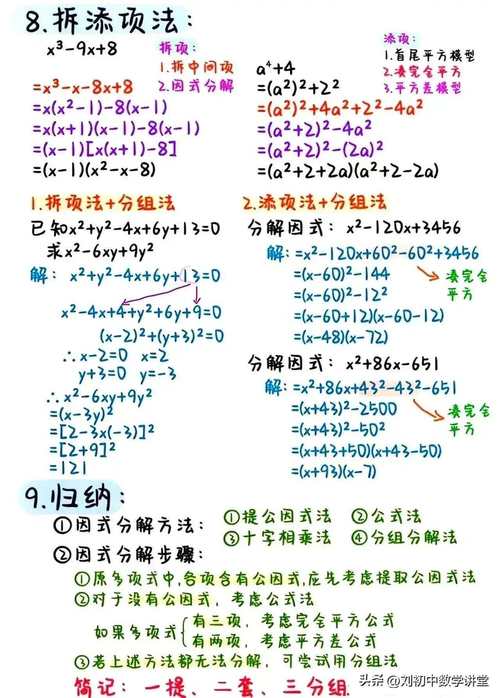 8.拆添项法:
x³-9x+8
拆项:
1.拆中间项
2.因式分解
=x³-x-8x+8
=x(x²-1)-8(x-1)
=x(x+1)(x-1)-8(x-1)
=(x-1)[x(x+1)-8]
=(x-1)(x²-x-8)
添项:
1.首尾平方模型
2.凑完全平方
3.平方差模型
a⁴+4
=(a²)²+2²
=(a²)²+4a²+2²-4a²
=(a²+2)²-4a²
=(a²+2)²-(2a)²
=(a²+2+2a)(a²+2-2a)
1.拆项法+分组法
已知x²+y²-4x+6y+13=0
求x²-6xy+9y²
解: x²+y²-4x+6y+13=0
x²-4x+4+y²+6y+9=0
(x-2)²+(y+3)²=0
∴x-2=0 x=2
y+3=0 y=-3
∴x²-6xy+9y²
=(x-3y)²
=[2-3x(-3)]²
=[2+9]²
=121
2.添项法+分组法
分解因式: x²-120x+3456
解:=x²-120x+60²-60²+3456
=(x-60)²-144
凑完全
平方
=(x-60)²-12²
=(x-60+12)(x-60-12)
=(x-48)(x-72)
分解因式: x²+86x-651
解:=x²+86x+43²-43²-651
=(x+43)²-2500
凑完全
平方
=(x+43)²-50²
=(x+43+50)(x+43-50)
=(x+93)(x-7)
9.归纳:
①因式分解方法: ①提公因式法 ②公式法
③十字相乘法 ④分组分解法
②因式分解步骤:
①原多项式中,各项含有公因式,应先考虑提取公因式法
②对于没有公因式,考虑公式法
如果多项式
有三项,考虑完全平方公式
有两项,考虑平方差公式
③若上述方法都无法分解,可尝试用分组法
简记: 一提、二套、三分组.
头条 @刘初中数学讲堂